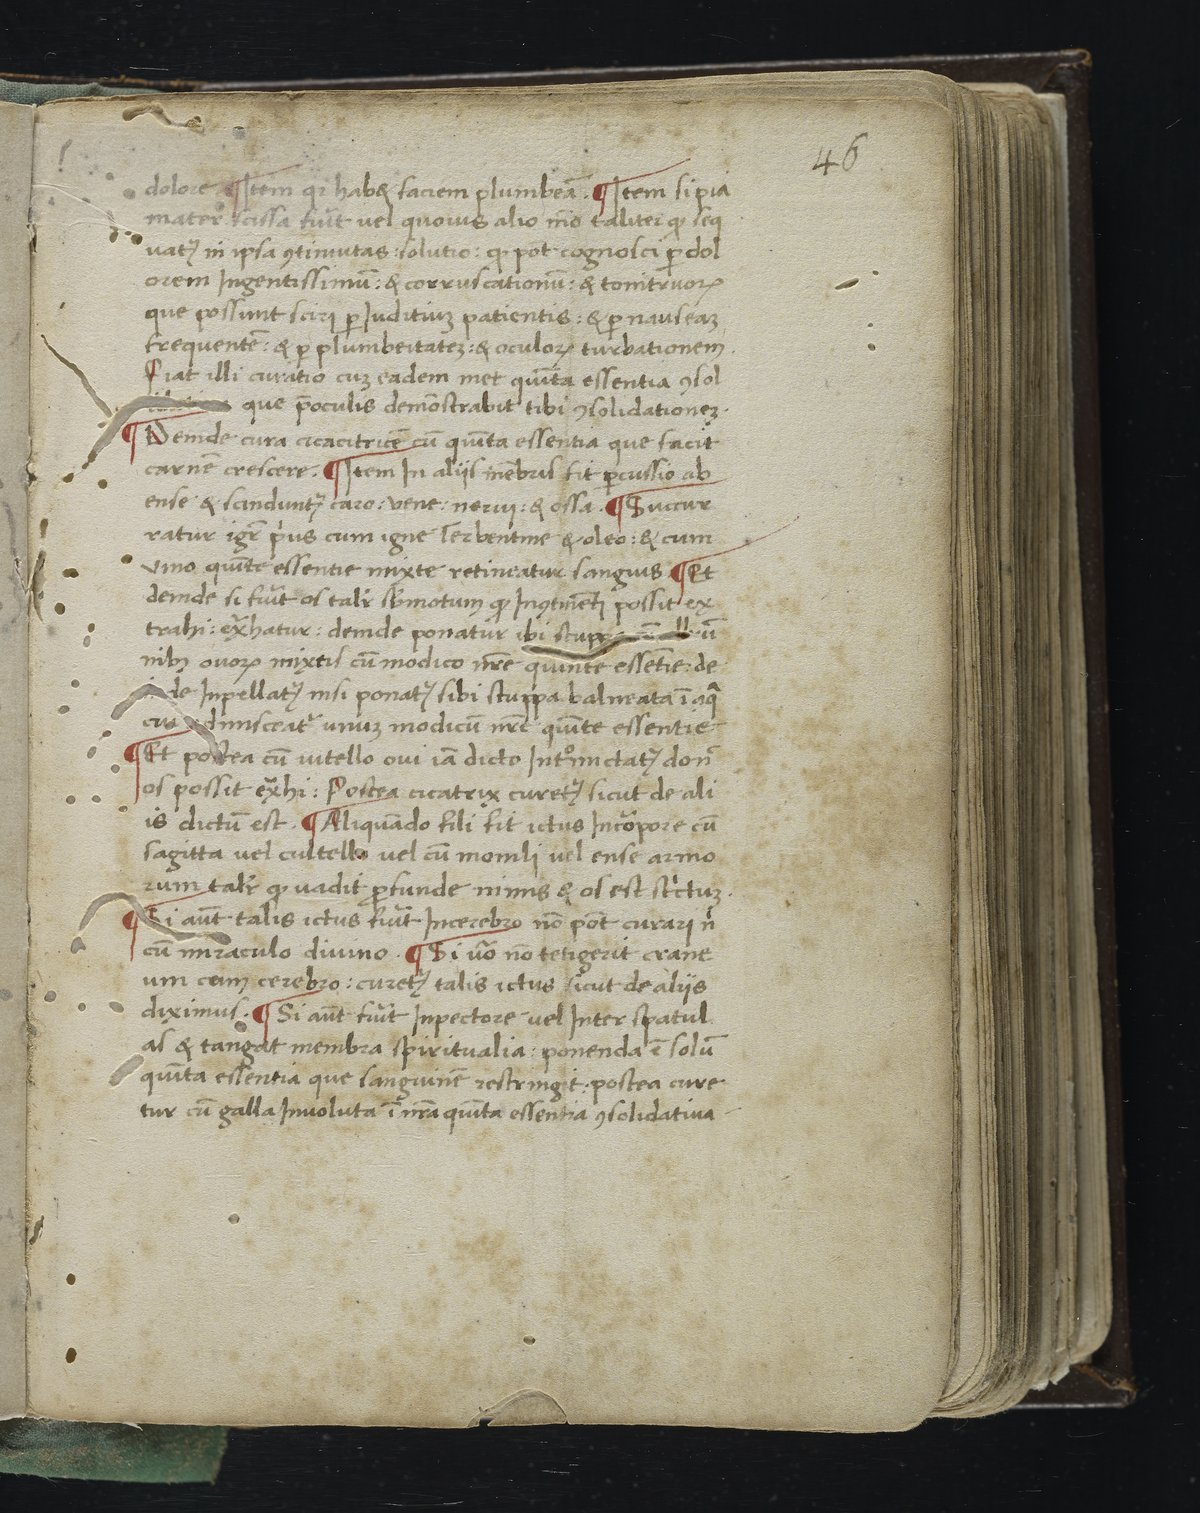 46
dolore. ¶Item qꝛ hab& faciem plumbeā. ¶Item si pia
mater scissa fuit vel quouis alio mō taliter ꝙ seq
vatꝛ in ipsa ꝯtinuitas: solutio: ꝙ pot cognosci ꝑ dol
orem Ingentissimū: & corruscationū: & tonitruoꝝ
que possunt sciri ꝑ Juditiuꝫ patientis: & ꝑ nauseaꝫ
frequentē: & ꝑ plumbeitateꝫ: & oculoꝝ turbationem.
Fiat illi curatio cuꝫ eadem met quīta essentia ꝯsol
que p̄oculis demōstrabit tibi ꝯsolidationeꝫ.
¶Deinde cura cicacitricē cū quīta essentia que facit
carnē crescere. ¶Item In aliis mēbris fit ꝑcussio ab
ense & scinduntꝛ caro: vene: nerui: & ossa. ¶Succur
ratur igr̄ prius cum igne Terbentine & oleo: & cum
vino quīte essentie mixte retineatur sanguis. ¶Et
deinde si fuit os talir ꝙ possit ex
trahi: exhatur: deinde ponatur ibi stuppa
nibꝫ ouoꝝ mixtis cū modico nr̄e quinte essētie: de
Inpellatꝛ nisi ponatꝛ sibi stuppa balneata ī aq̄
unuꝫ modicū nr̄e quīte essentie
¶Et postea cū uitello oui iā dicto donc̄
os possit exhi: Postea cicatrix curetꝛ sicut de ali
is dictū est. ¶Aliquādo fili fit ictus Incorpore cū
sagitta vel cultello vel cū vel ense armo
rum talir ꝙ vadit ꝓfunde nimis & os est strictuꝫ.
¶Si aūt talis ictus fuit Incerebro nō pōt curari n
cū miraculo diuino. ¶Si uō nō tetigerit crane
um cum cerebro: curetꝛ talis ictus sicut de aliis
diximus. ¶Si aūt fuit Inpectore vel Inter spatul
as & tangat membra spiritualia: ponenda ē solū
quīta essentia que sanguinē restringit: postea cure
tur cū galla Inuoluta ī nr̄a quīta essentia ꝯsolidatiua